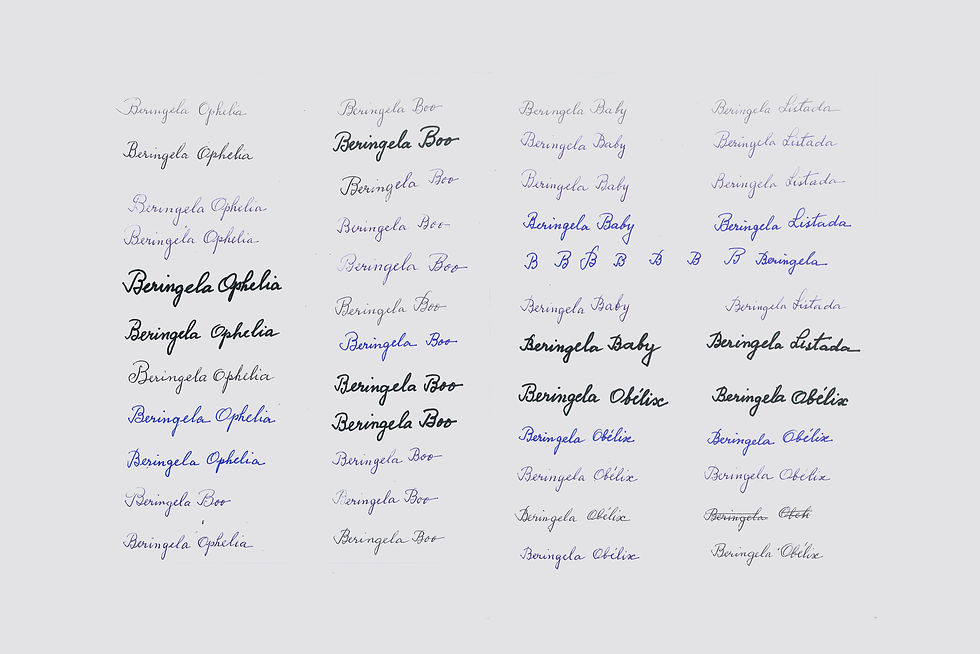 Beringela Ophelia
Beringela Ophelia
Beringela Ophelia
Beringela Ophelia
Beringela Ophelia
Beringela Ophelia
Beringela Ophelia
Beringela Ophelia
Beringela Ophelia
Beringela Boo
Beringela Ophelia
Beringela Boo
Beringela Boo
Beringela Boo
Beringela Boo
Beringela Boo
Beringela Boo
Beringela Boo
Beringela Boo
Beringela Boo
Beringela Boo
Beringela Boo
Beringela Boo
Beringela Baby
Beringela Baby
Beringela Baby
Beringela Baby
B B B B B B B Beringela
Beringela Baby
Beringela Baby
Beringela Obélix
Beringela Obélix
Beringela Obélix
Beringela Obélix
Beringela Obélix
Beringela Listada
Beringela Listada
Beringela Listada
Beringela Listada
Beringela Listada
Beringela Listada
Beringela Obélix
Beringela Obélix
Beringela Obélix
Beringela
Beringela Obélix